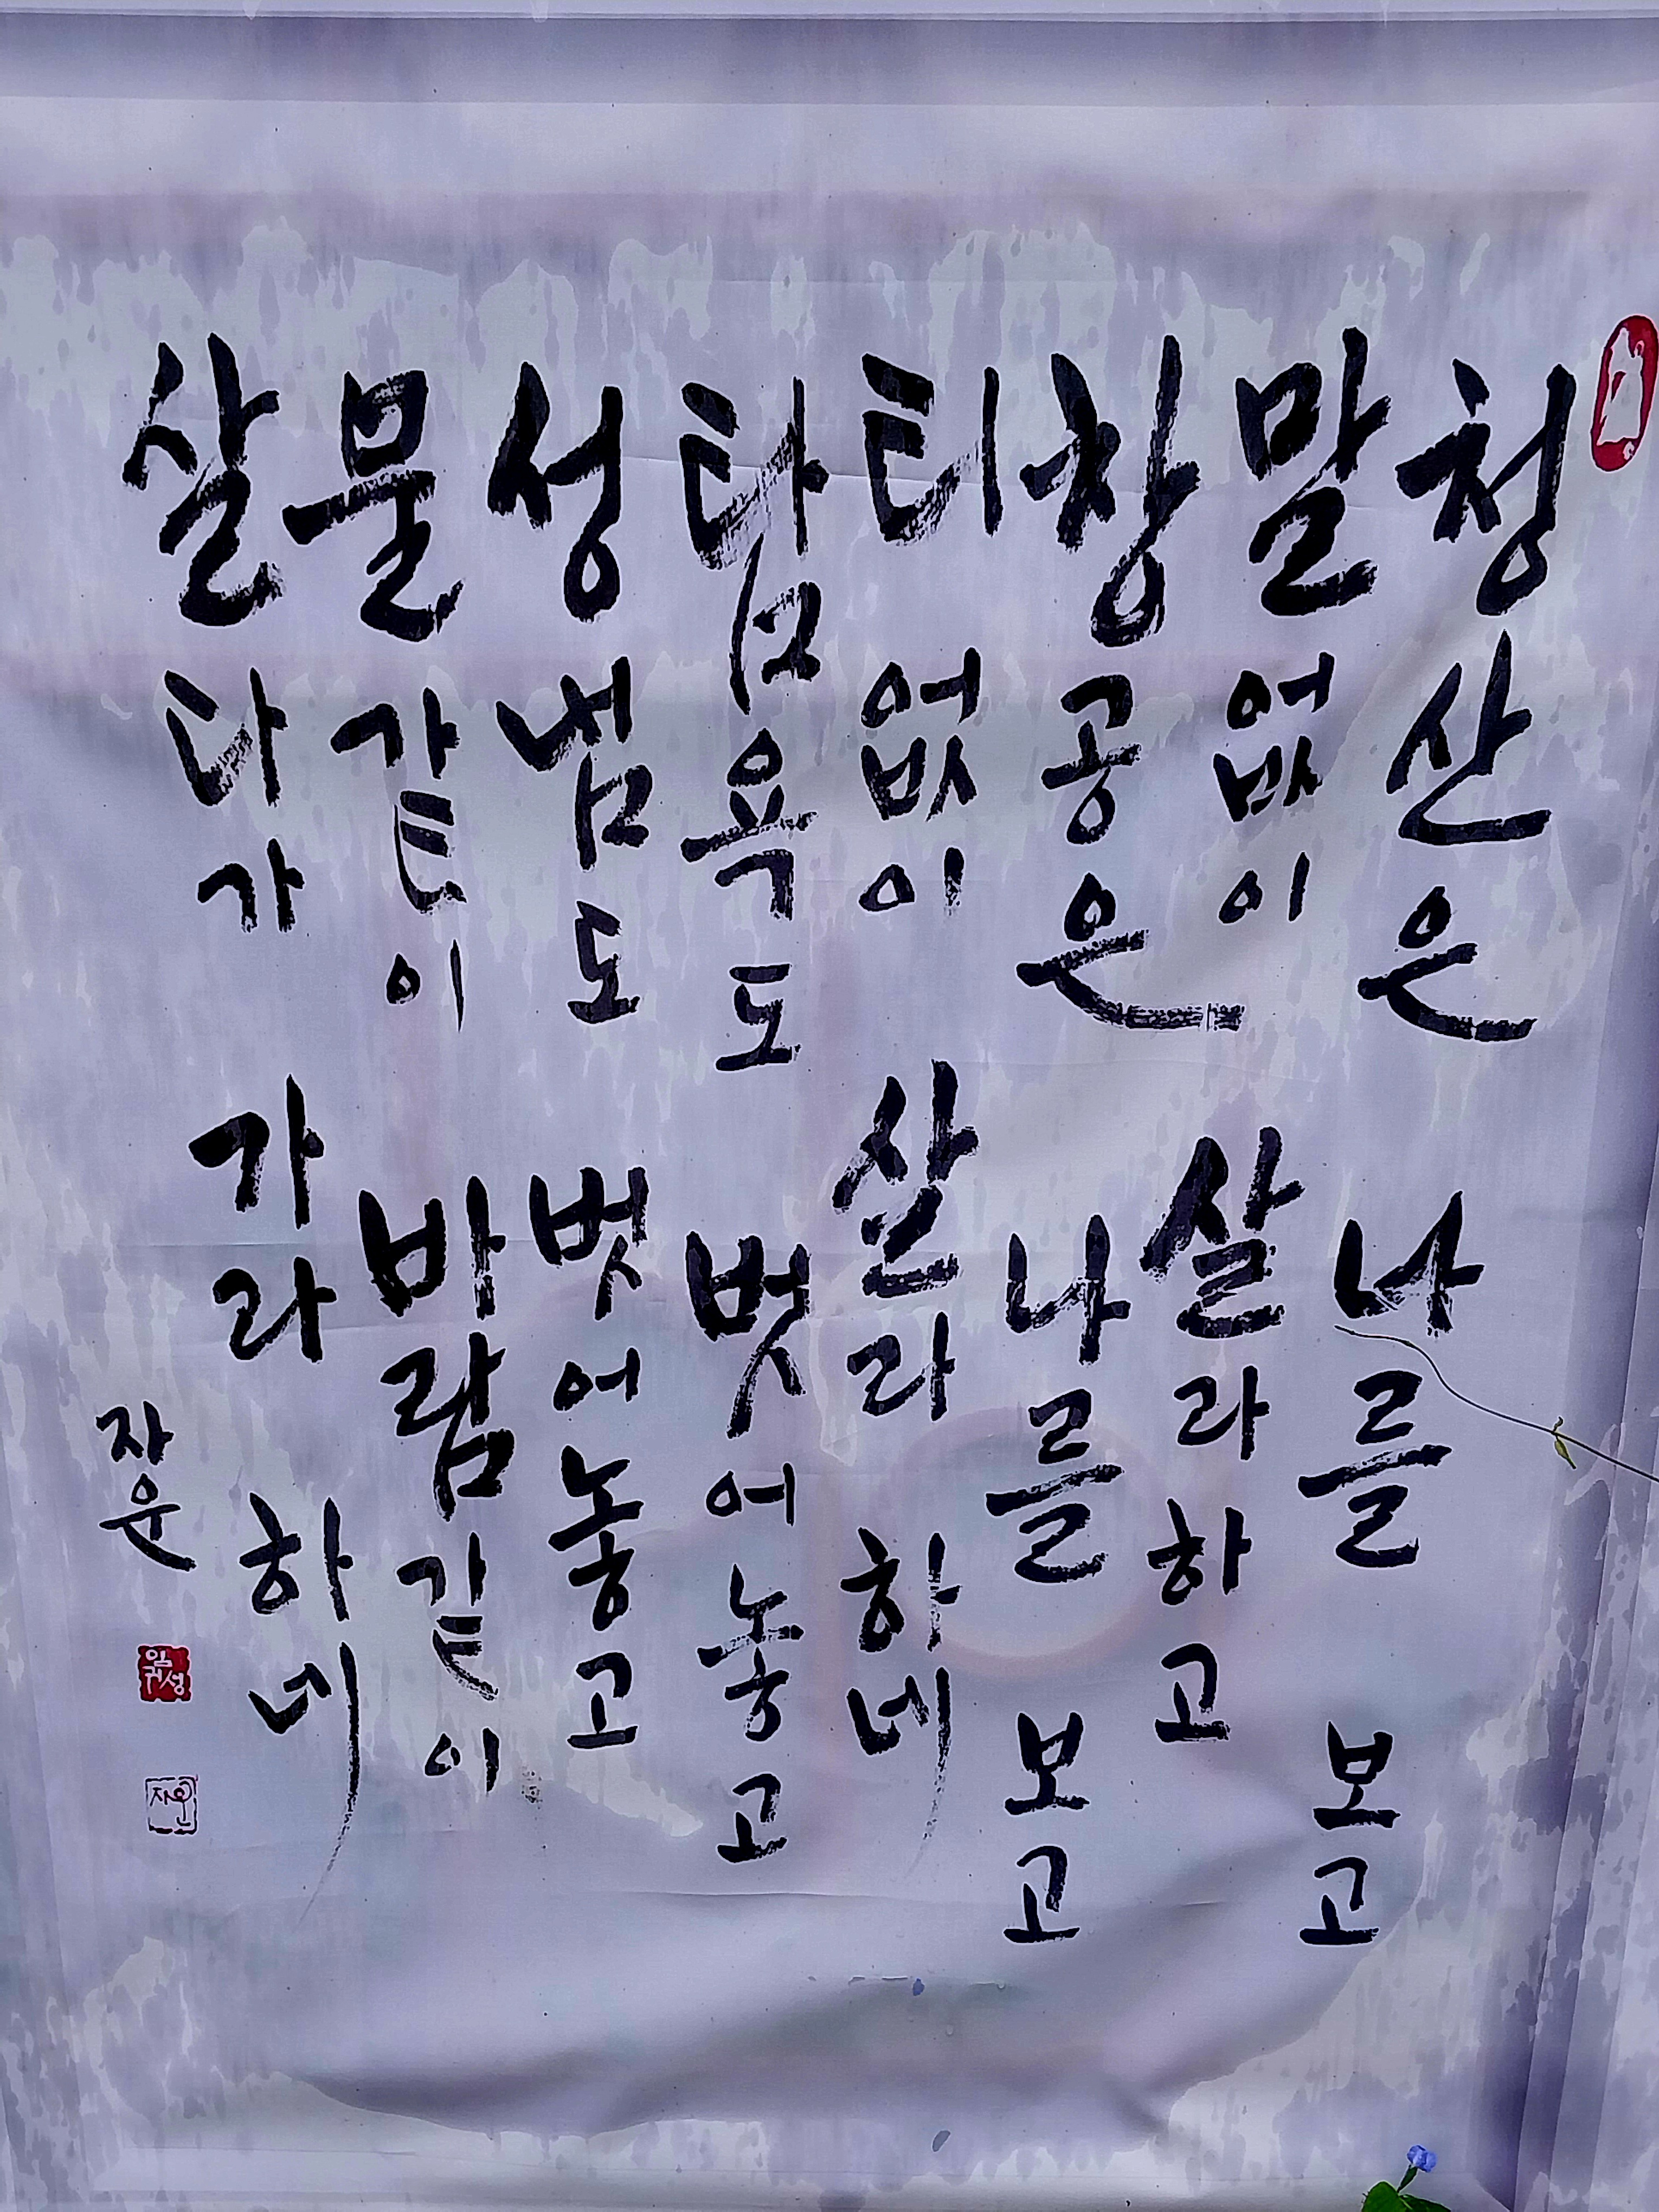 청산은 나를 보고
말없이 살라하고
창공은 나를 보고
티없이 살라 하네
탐욕도 벗어놓고
성냄도 벗어놓고
물같이 바람같이
살다가 가라 하네
자운
임귀성
자운